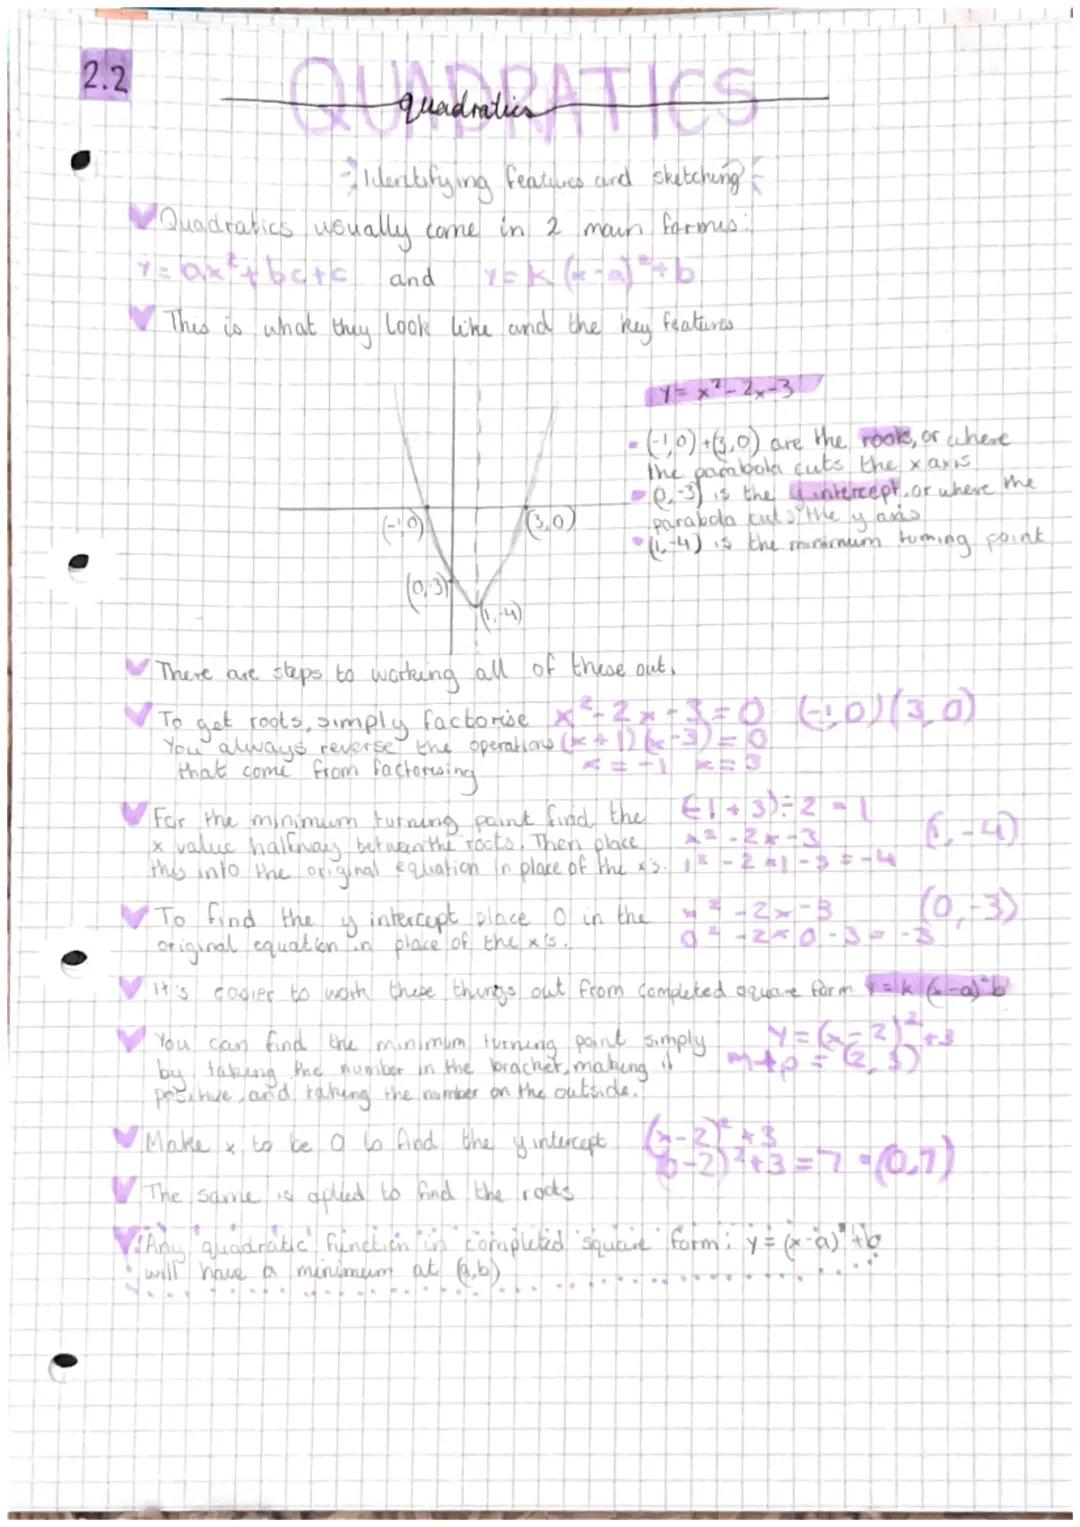 2.2
QUADRATICS
quadratics
Identifying features and sketching
Quadratics usually come in 2 main forms:
y = ax² + bc + c and y = k(x-a)² + b
This is what they look like and the key features
y = x² - 2x - 3
(-1,0) + (3,0) are the roots, or where
the parabola cuts the x axis
(0,-3) is the y intercept, or where the
parabola cuts the y axis
(1,-4) is the minimum turning point
(-1,0)
(3,0)
(0,-3)
(1,-4)
There are steps to working all of these out.
To get roots, simply factorise x² - 2x - 3 = 0 (-1,0)(3,0)
You always reverse the operations (x+1)(x-3) = 0
that come from factorising x = -1 x = 3
For the minimum turning point find the (-1+3)÷2 = 1
x value halfway between the roots. Then place x² - 2x - 3 (1,-4)
this into the original equation in place of the x's. 1² - 2×1 - 3 = -4
To find the y intercept place 0 in the x² - 2x - 3 (0,-3)
original equation in place of the x's. 0² - 2×0 - 3 = -3
It's easier to work these things out from completed square form y = k(x-a)²b
You can find the minimum turning point simply y = (x-2)² + 3
by taking the number in the bracket, making it m+p = (2,3)
positive, and taking the number on the outside.
Make x to be 0 to find the y intercept (x-2)² + 3
(0-2)² + 3 = 7 = (0,7)
The same is aplied to find the roots
Any quadratic function in completed square form: y = (x-a)² + b
will have a minimum at (a,b)